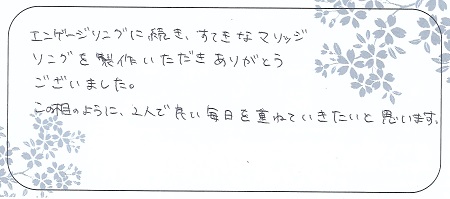 エンゲージリングに続き、すてきなマリッジ
リングを製作いただきありがとう
ございました。
この相のように、2人で良い毎日を重ねていきたいと思います。